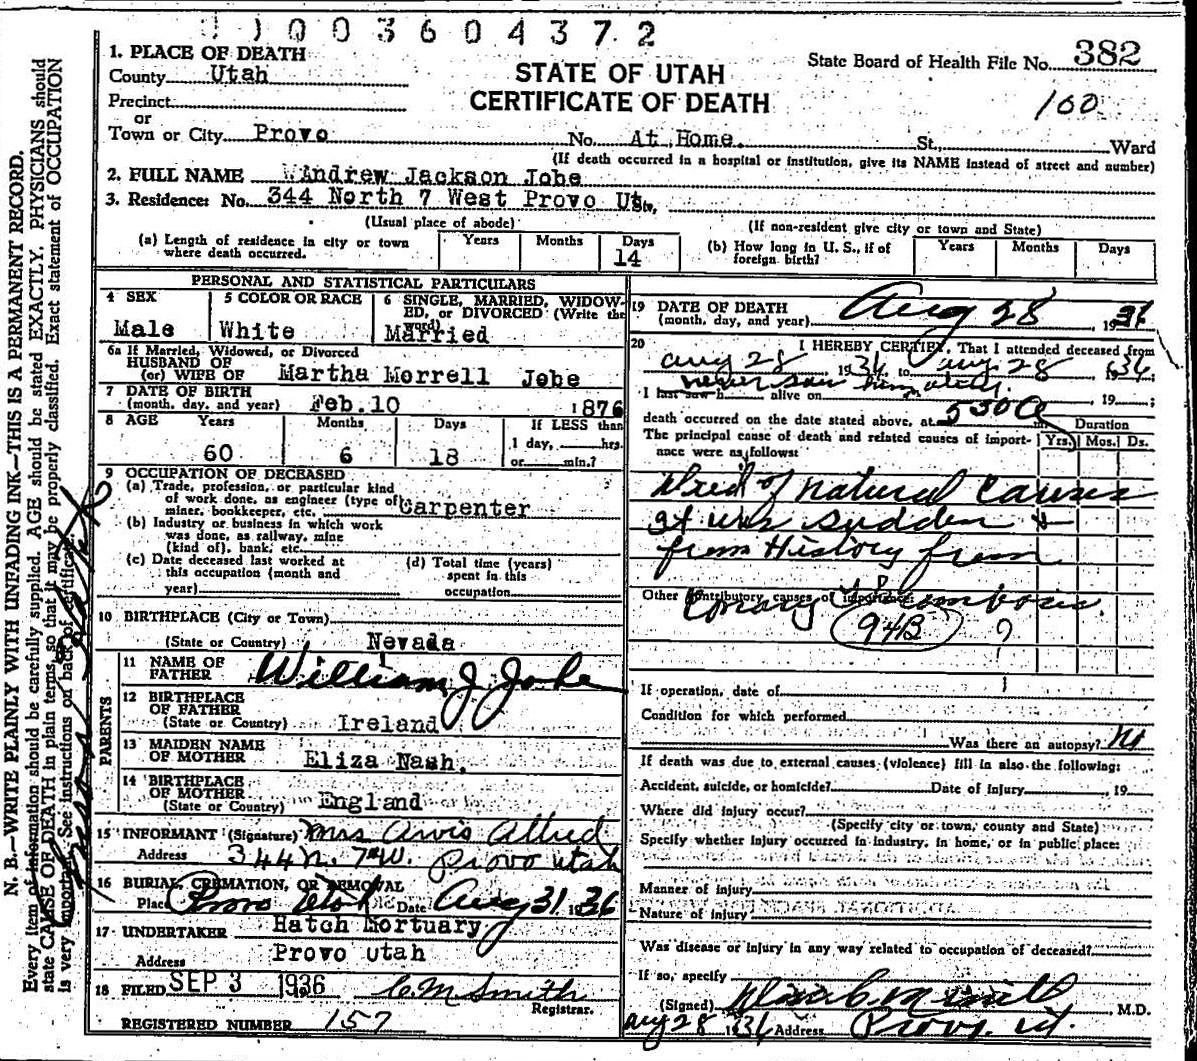 1003604372
1. PLACE OF DEATH
County Utah
Precinct
or
Town or City Provo No. At Home. St., Ward
STATE OF UTAH
CERTIFICATE OF DEATH
State Board of Health File No. 382
100
(If death occurred in a hospital or institution, give its NAME instead of street and number)
2. FULL NAME Andrew Jackson Jobe
3. Residence: No. 344 North 7 West Provo Ut. St.,
(Usual place of abode) (If non-resident give city or town and State)
(a) Length of residence in city or town where death occurred. Years Months Days 14
(b) How long in U. S., if of foreign birth? Years Months Days
PERSONAL AND STATISTICAL PARTICULARS
4 SEX Male
5 COLOR OR RACE White
6 SINGLE, MARRIED, WIDOWED, OR DIVORCED (Write the word) Married
6a If Married, Widowed, or Divorced
HUSBAND OF
(or) WIFE OF Martha Morrell Jobe
7 DATE OF BIRTH
(month, day, and year) Feb.10 1876
8 AGE Years Months Days If LESS than
60 6 18 1 day, hrs.
or min.?
9 OCCUPATION OF DECEASED
(a) Trade, profession, or particular kind
of work done, as engineer (type of)
miner, bookkeeper, etc. Carpenter
(b) Industry or business in which work
was done, as railway, mine
(kind of), bank, etc.
(c) Date deceased last worked at
this occupation (month and
year)
(d) Total time (years)
spent in this
occupation
10 BIRTHPLACE (City or Town)
(State or Country) Nevada
PARENTS
11 NAME OF
FATHER William J Jobe
12 BIRTHPLACE
OF FATHER
(State or Country) Ireland
13 MAIDEN NAME
OF MOTHER Eliza Nash.
14 BIRTHPLACE
OF MOTHER
(State or Country) England
15 INFORMANT (Signature) Mrs Arvis Allred
Address 344 N. 7 W. Provo Utah
16 BURIAL, CREMATION, OR REMOVAL
Place Provo Utah Date Aug 31 1936
17 UNDERTAKER Hatch Mortuary
Address Provo Utah
18 FILED SEP 3 1936 C.M. Smith
Registrar.
REGISTERED NUMBER 157
19 DATE OF DEATH
(month, day, and year) Aug 28 1936
20 I HEREBY CERTIFY, That I attended deceased from
Aug 28 1936, to Aug. 28 1936;
I last saw h alive on never saw him 19 ;
death occurred on the date stated above, at 5 30 A m.
The principal cause of death and related causes of importance were as follows: Duration
Yrs. Mos. Ds.
Died of natural causes
It was sudden &
from History from
Other contributory causes of importance:
94B ?
If operation, date of
Condition for which performed
Was there an autopsy? No
If death was due to external causes (violence) fill in also the following:
Accident, suicide, or homicide? Date of injury , 19
Where did injury occur?
(Specify city or town, county and State)
Specify whether injury occurred in industry, in home, or in public place:
Manner of injury
Nature of injury
Was disease or injury in any way related to occupation of deceased?
If so, specify
(Signed) , M.D.
Aug 28 1936 Address Provo. Ut.
N. B.—WRITE PLAINLY WITH UNFADING INK—THIS IS A PERMANENT RECORD.
Every item of information should be carefully supplied. AGE should be stated EXACTLY. PHYSICIANS should
state CAUSE OF DEATH in plain terms, so that it may be properly classified. Exact statement of OCCUPATION
is very important. See instructions on back of certificate.